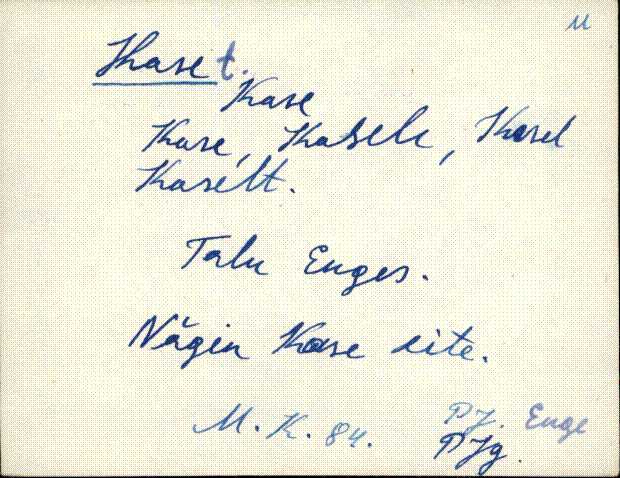 M
Kase t.
Kase
Kase, Kasele, Kasel
Kaselt.
Talu Enges.
Nägin Kase eite.
M. K. 84. PJ. Enge
PJg.